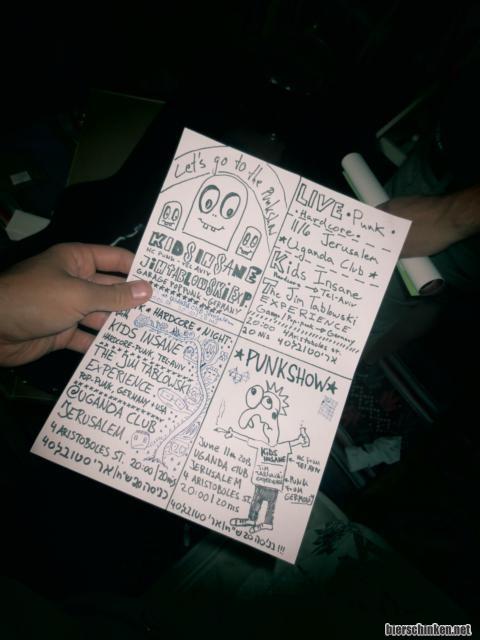 Let's go to the Punkshow
KIDS INSANE
HC PUNK · TEL AVIV
JIM TABLOWSKI EXP
GARAGE POP PUNK · GERMANY
LIVE · Punk ·
· Hardcore ·
11/6 Jerusalem
*Uganda Club*
Kids Insane
Tel-Aviv
The Jim Tablowski
EXPERIENCE
pop-punk → Germany
20:00 4 Aristobolos st.
20 NIS
HARDCORE · NIGHT·
KIDS INSANE
HARDCORE-PUNK TEL-AVIV
THE JIM TABLOWSKI
EXPERIENCE
POP-PUNK GERMANY
@UGANDA CLUB
JERUSALEM
4 ARISTOBOLES ST. 20:00 | 20 NIS
★PUNKSHOW★
KIDS
INSANE
HC FROM
TEL AVIV
JIM
TABLOWSKI
EXPERIENCE
PUNK
FROM
GERMANY
June 11th 2013
UGANDA CLUB
JERUSALEM
4 ARISTOBOLES ST.
20:00 | 20 NIS
bierschinken.net